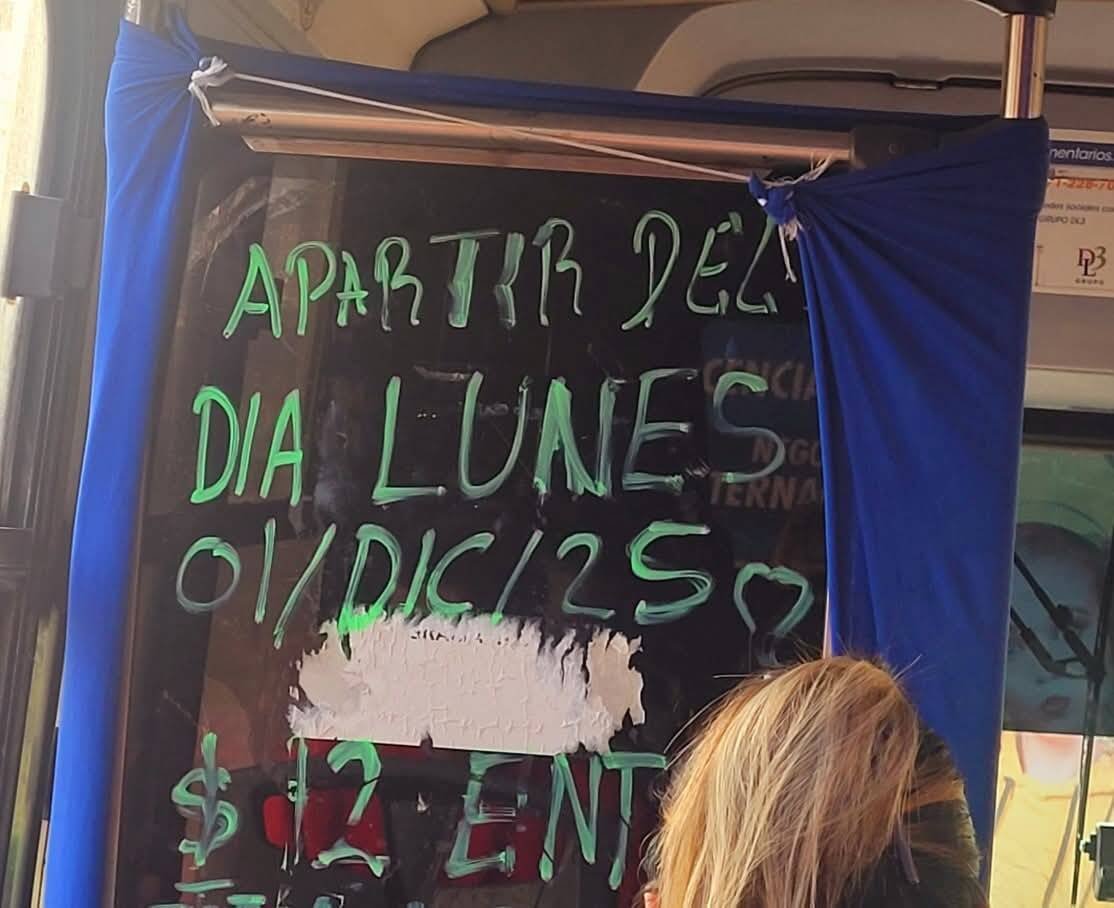 APARTIR DEL
DIA LUNES
01/DIC/25
$12 ENT
nentarios
1-228-70
GRUPO DL3
DL3
GRUPO
NEGO
TERNA